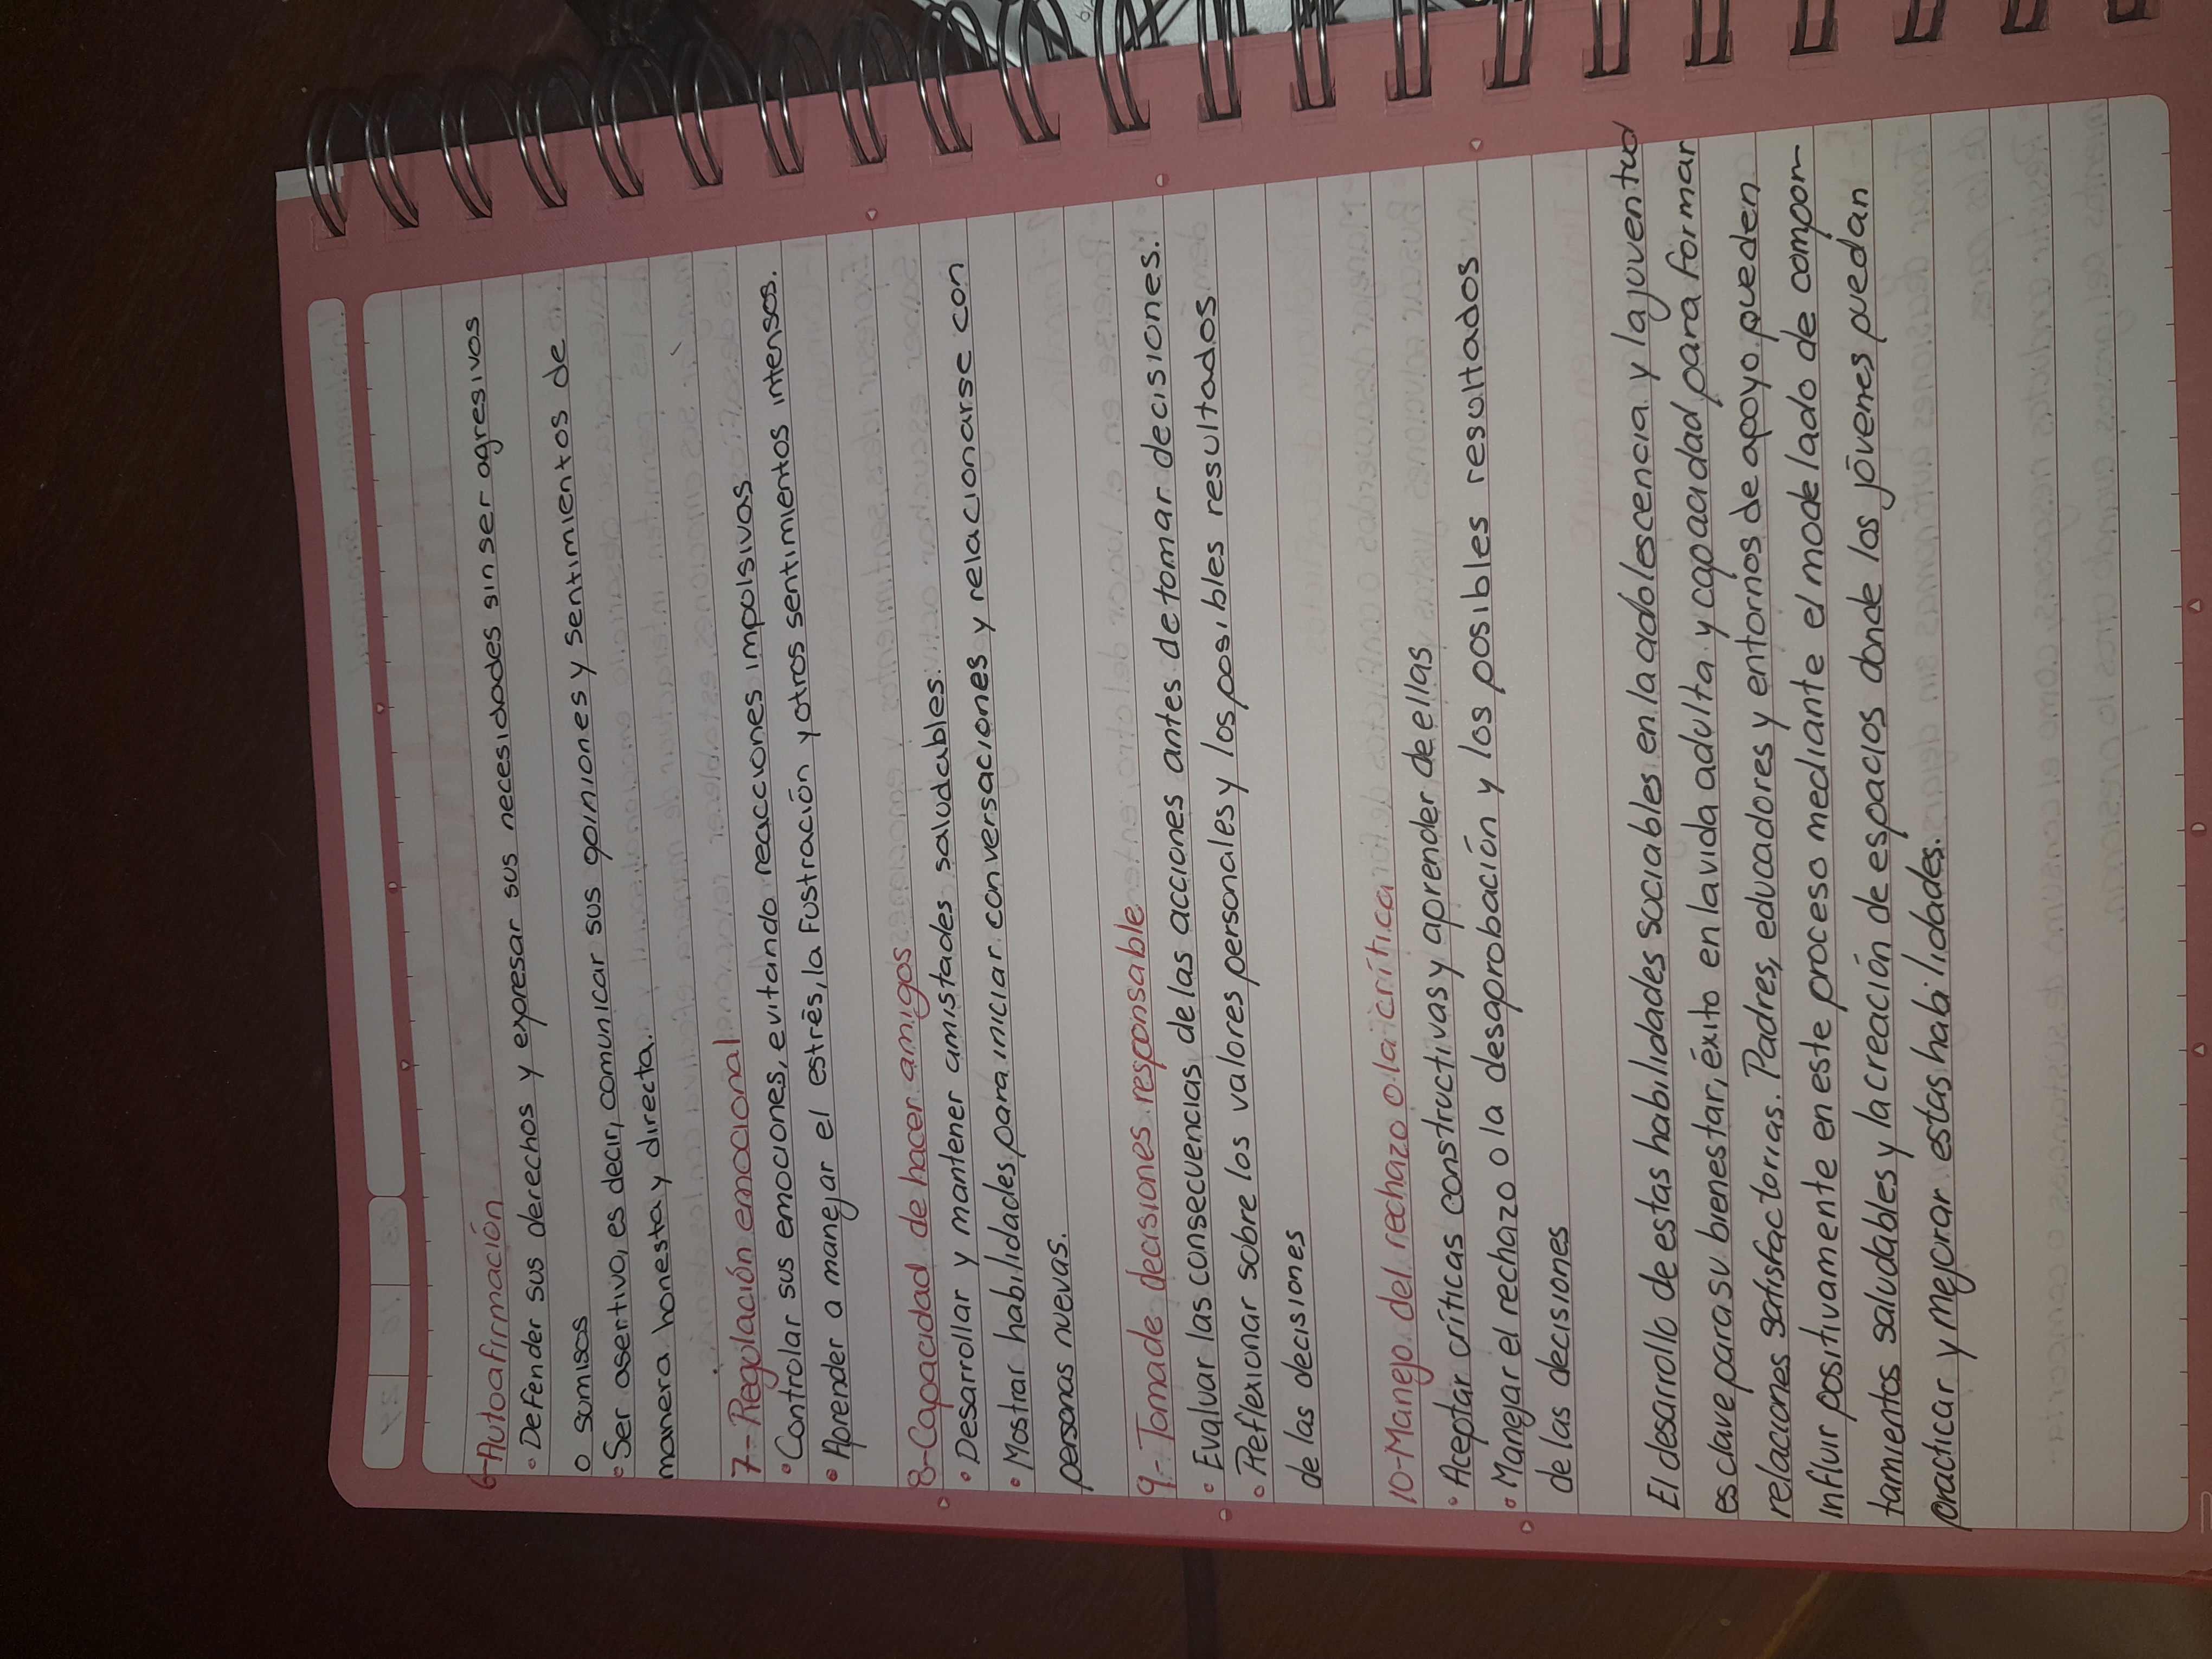 6-Autoafirmación
• Defender sus derechos y expresar sus necesidades sin ser agresivos
o sumisos
• Ser asertivo, es decir, comunicar sus opiniones y sentimientos de
manera honesta y directa.
7-Regulación emocional
• Controlar sus emociones, evitando reacciones impolsivas.
• Aprender a manejar el estrés, la Fustración y otros sentimientos intensos.
8-Capacidad de hacer amigos
• Desarrollar y mantener amistades saludables.
• Mostrar habilidades para iniciar conversaciones y relacionarse con
personas nuevas.
9.- Toma de decisiones responsable
• Evaluar las consecuencias de las acciones antes de tomar decisiones.
• Reflexionar sobre los valores personales y los posibles resultados
de las decisiones
10-Manejo del rechazo o la crítica
• Aceptar críticas constructivas y aprender de ellas
• Manejar el rechazo o la desaprobación y los posibles resultados
de las decisiones
El desarrollo de estas habilidades sociables en la adolescencia y la juventud
es clave para su bienestar, éxito en la vida adulta y capacidad para formar
relaciones satisfactorias. Padres, educadores y entornos de apoyo pueden
influir positivamente en este proceso mediante el modelado de compor-
tamientos saludables y la creación de espacios donde los jóvenes puedan
practicar y mejorar estas habilidades.